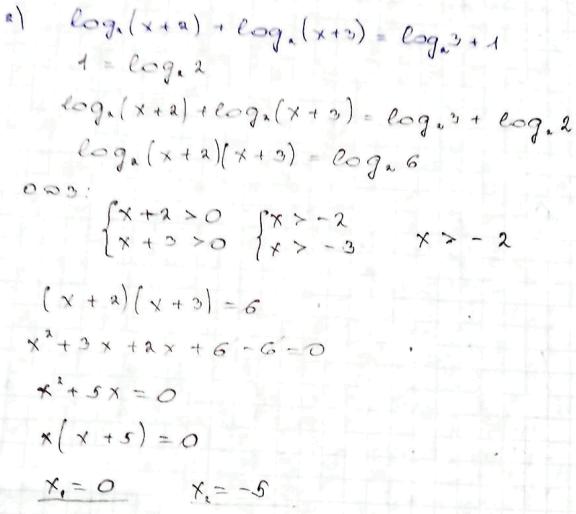 а) log₂(x+2) + log₂(x+3) = log₂3 + 1
1 = log₂ 2
log₂(x+2) + log₂(x+3) = log₂3 + log₂2
log₂(x+2)(x+3) = log₂ 6
ОДЗ:
{x+2>0 {x>-2
{x+3>0 {x>-3 x>-2
(x+2)(x+3)=6
x²+3x+2x+6-6=0
x²+5x=0
x(x+5)=0
x₁=0 x₂=-5